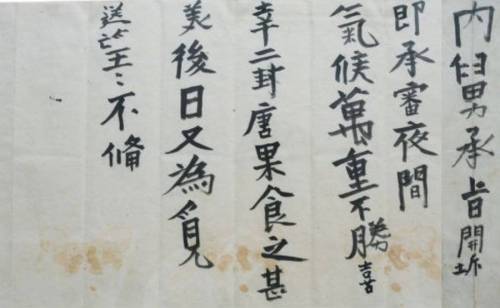 内舅承旨開坼
即承審夜間
氣候萬重不勝喜
幸二封唐果食之甚
美後日又為覓
送望〻不備